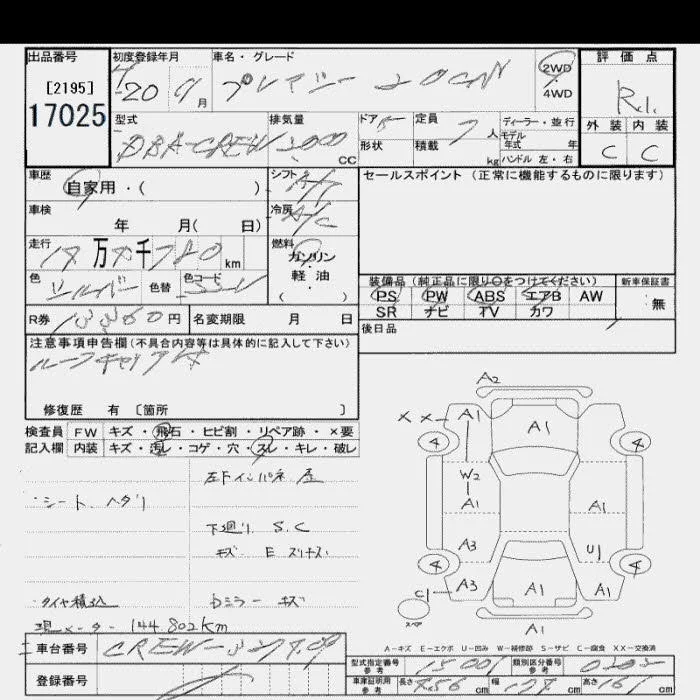 出品番号 初度登録年月 車名・グレード 2WD 評価点
[2195] 20 9月 プレマシー 20CN 4WD R.1.
17025 型式 排気量 ドア 定員 7人 ディーラー・並行 外装 内装
DBA-CREW 2000 CC 形状 積載 kg モデル年式 年 C C
ハンドル 左・右
車歴 シフト セールスポイント (正常に機能するものに限ります)
自家用・( )
車検 冷房 A/C
年 月( 日)
走行 万 千 km 燃料 ガソリン
軽・油
( )
色 シルバー 色替 色コード
装備品 (純正品に限り○をつけてください) 新車保証書
PS PW ABS エアB AW 無
SR ナビ TV カワ
R券 円 名変期限 月 日 後日品
注意事項申告欄(不具合内容等は具体的に記入して下さい)
ルーフキャリア
修復歴 有 〔箇所 〕
検査員 FW キズ・飛石・ヒビ割・リペア跡・×要
記入欄 内装 キズ・汚レ・コゲ・穴・スレ・キレ・破レ
シートヘタリ
下廻り S.C
キズ E
タイヤ積込 Dミラー キズ
現メーター 144.802km
A2
XX A1 A1
4 4
W2
A1 A1
A3 U1
4 4
C1 A3 A1 A1
スペア
A1
A-キズ E-エクボ U-凹み W-補修跡 S-サビ C-腐食 XX-交換済
車台番号 CREW-
型式指定番号 参考 15001 類別区分番号 参考
登録番号
車庫証明用 参考 長さ 456 cm 幅 cm 高さ 161 cm